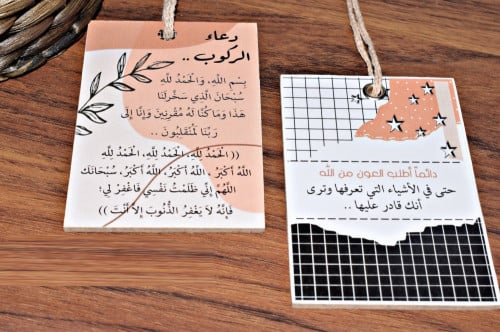 دعاء
الركوب ..
بِسْمِ اللَّهِ، وَالْحَمْدُ لِلَّهِ
سُبْحَانَ الَّذِي سَخَّرَ لَنَا
هَذَا وَمَا كُنَّا لَهُ مُقْرِنِينَ وَإِنَّا إِلَى
رَبِّنَا لَمُنْقَلِبُونَ ..
(( الْحَمْدُ لِلَّهِ، الْحَمْدُ لِلَّهِ، الْحَمْدُ لِلَّهِ
اللَّهُ أَكْبَرُ ، اللَّهُ أَكْبَرُ، اللَّهُ أَكْبَرُ، سُبْحَانَكَ
اللَّهُمَّ إِنِّي ظَلَمْتُ نَفْسِي فَاغْفِرْ لِي؛
فَإِنَّهُ لَا يَغْفِرُ الذُّنُوبَ إِلَّا أَنْتَ ))
دائماً أطلب العون من الله
حتى في الأشياء التي تعرفها وترى
أنك قادر عليها ..